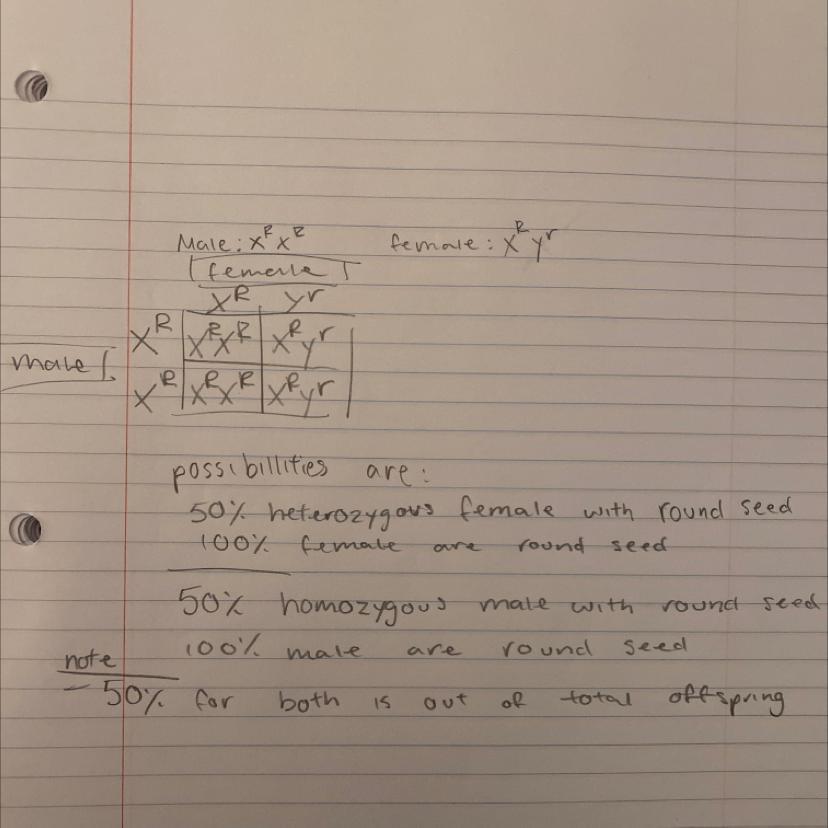 Male: X^R X^R female: X^R y^r
female
X^R y^r
X^R X^R X^R X^R y^r
male
X^R X^R X^R X^R y^r
possibillities are:
50% heterozygous female with round seed
100% female are round seed
50% homozygous male with round seed
100% male are round seed
note
- 50% for both is out of total offspring